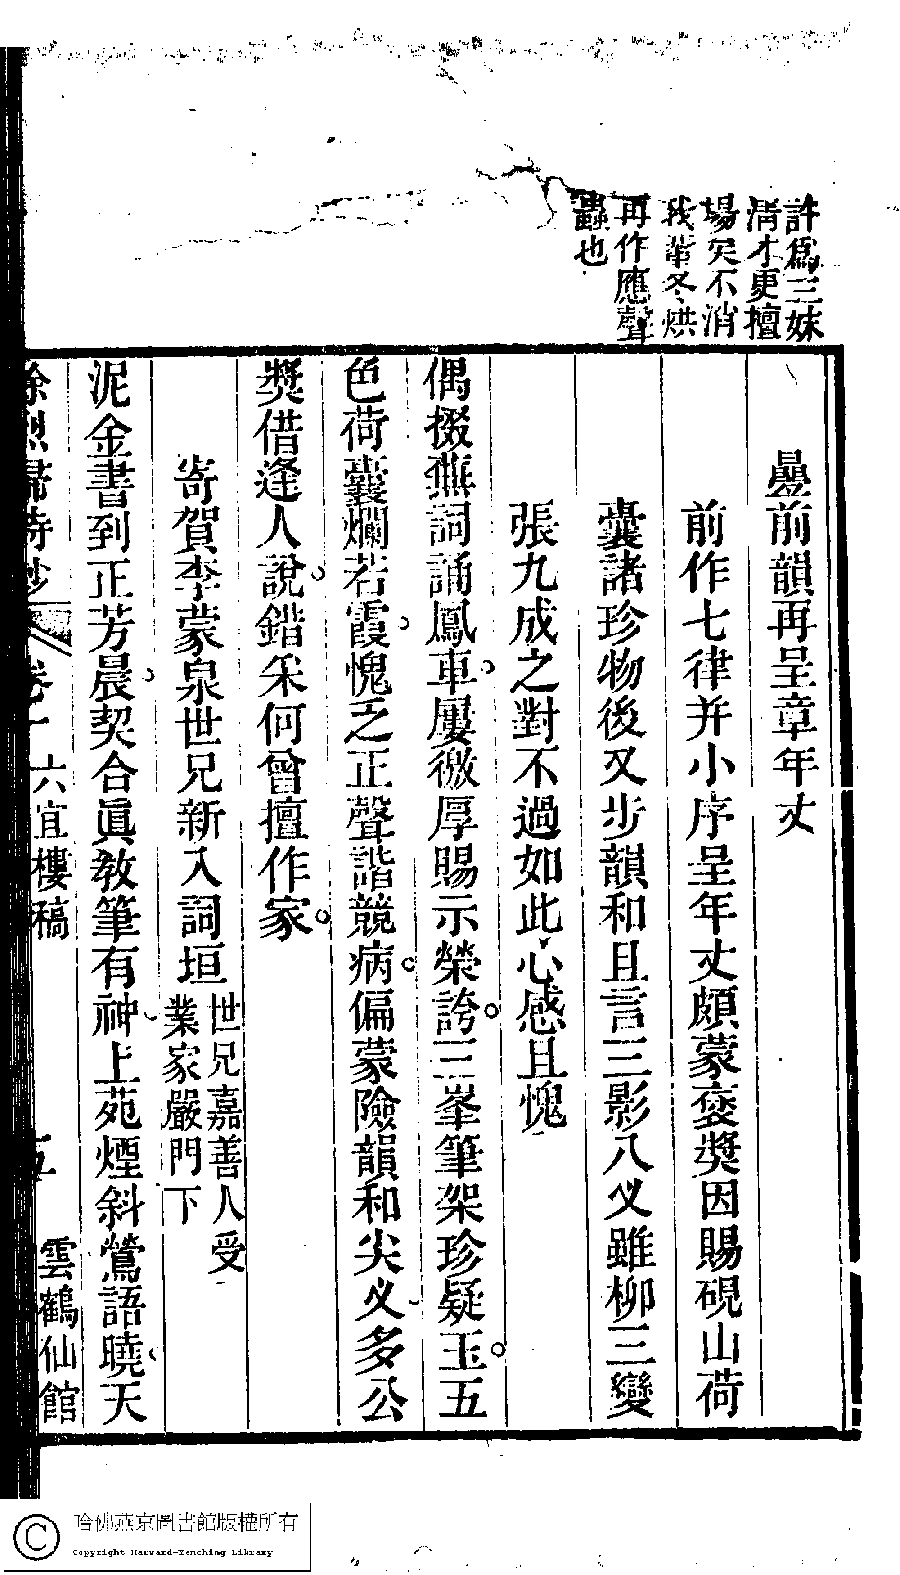 許爲三妹
清才更擅
場矣不消
我輩冬烘
再作應聲
蟲也
曡前韻再呈章年丈
前作七律并小序呈年丈頗蒙褒奬因賜硯山荷
囊諸珍物後又步韻和且言三影八义雖柳三變
張九成之對不過如此心感且愧
偶掇蕪詞誦鳳車屢徼厚賜示榮誇三峯筆架珍疑玉五
色荷囊爛若霞愧乏正聲諧競病偏蒙險韻和尖义多公
奬借逢人說鍇采何曾擅作家
寄賀李蒙泉世兄新入詞垣
世兄嘉善人受
業家嚴門下
泥金書到正芳晨契合眞教筆有神上苑煙斜鶯語曉天
徐烈婦詩鈔
卷十
六宜樓稿
五
雲鶴仙館
哈佛燕京圖書館版權所有
Copyright Harvard-Yenching Library